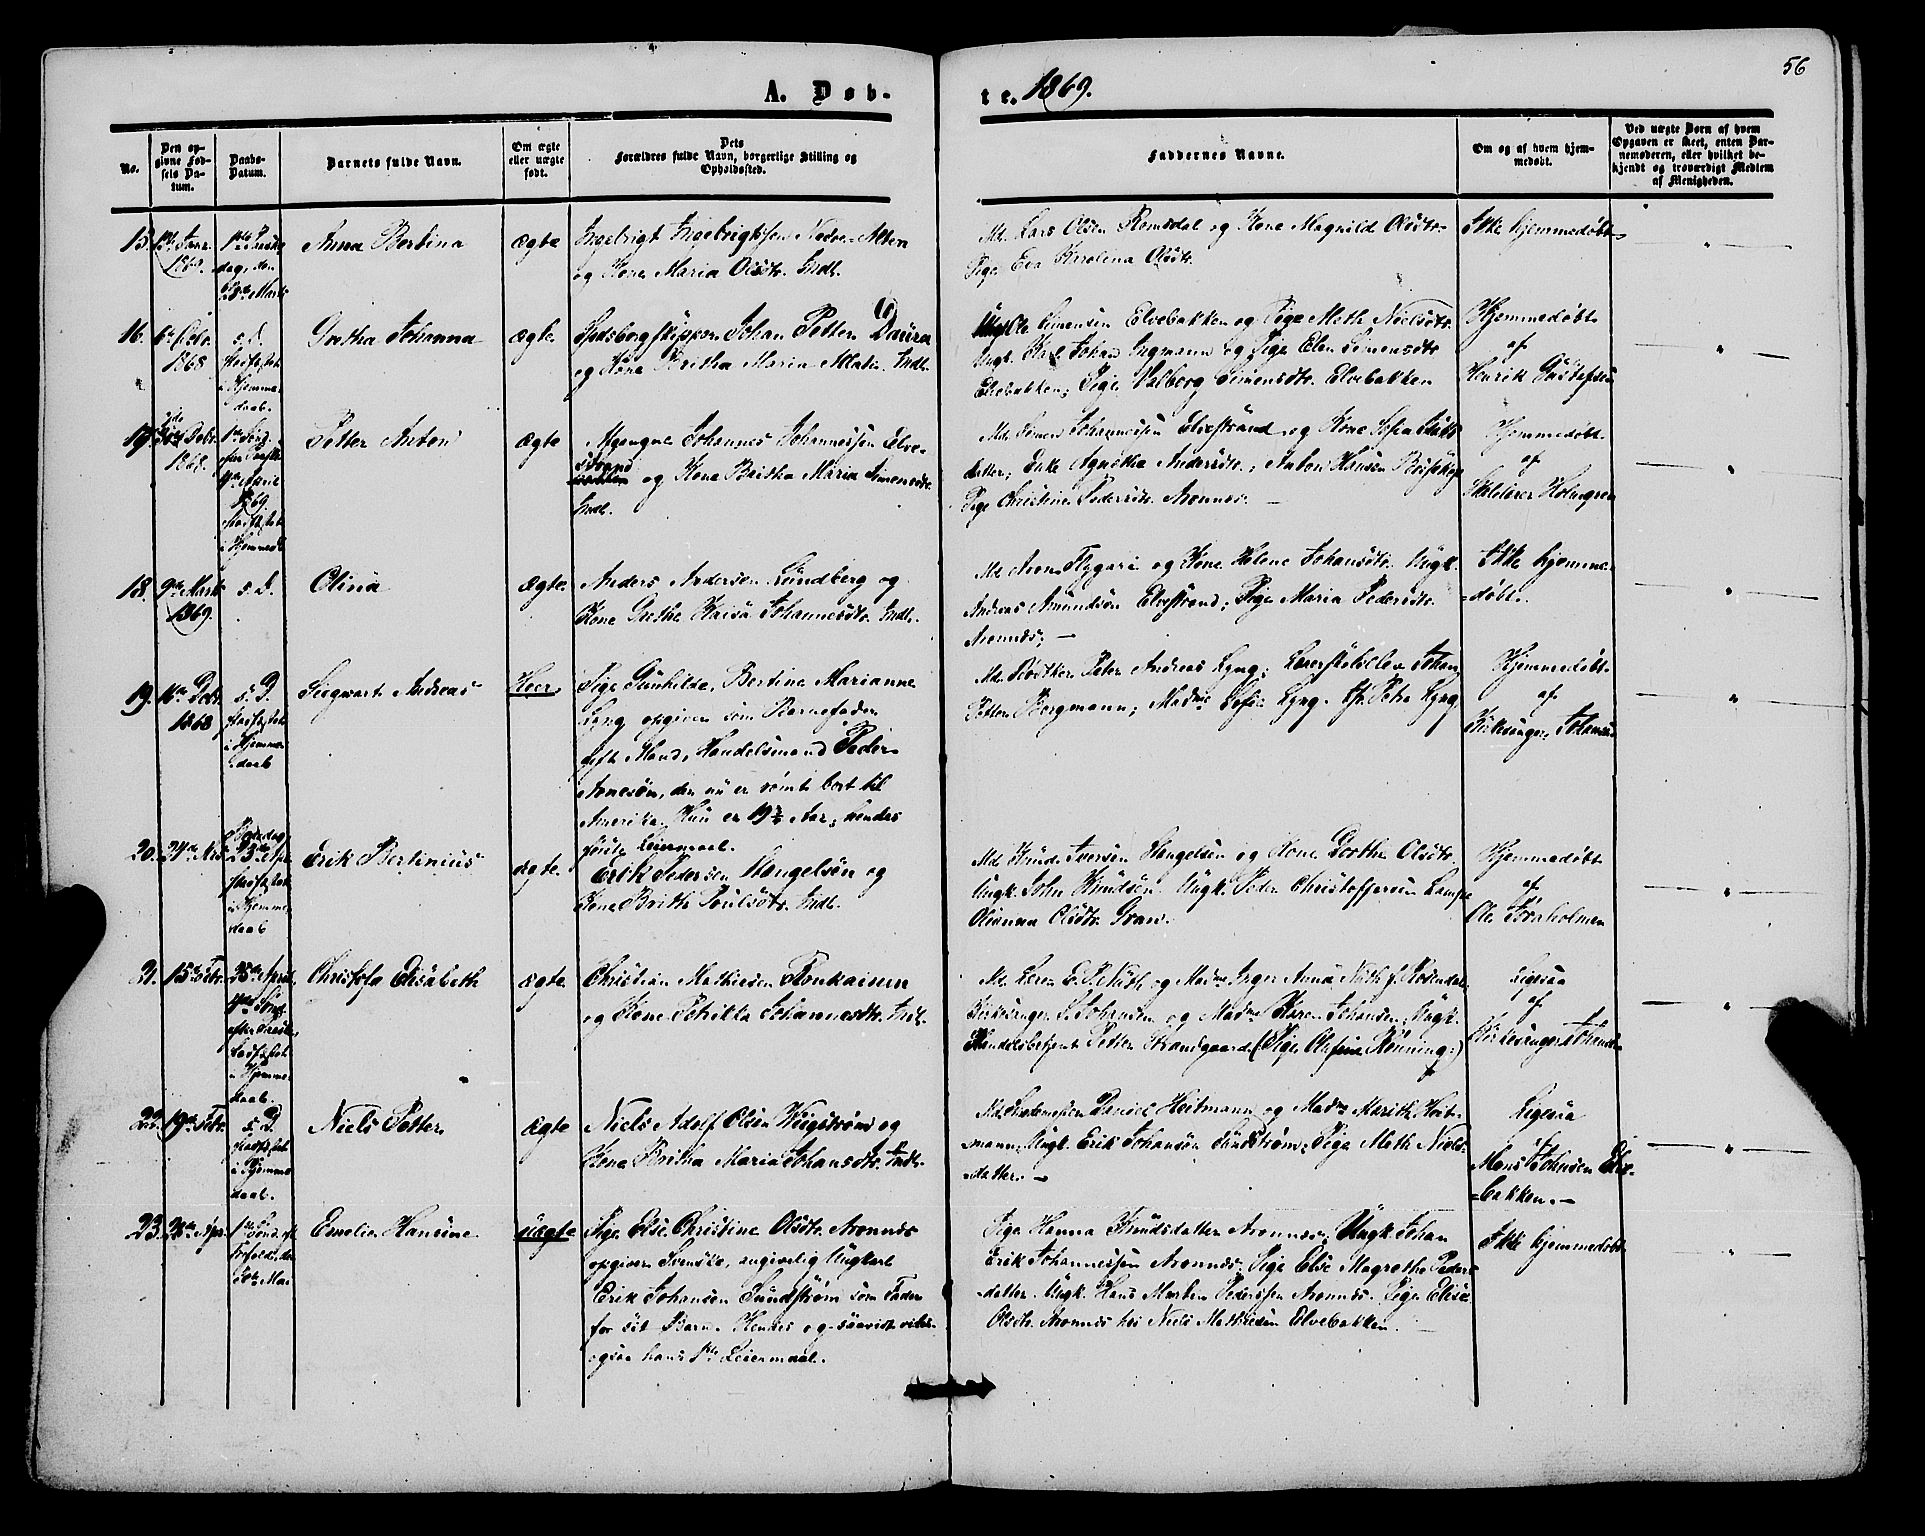 56
A. Døb-
te. 1869.
No.
Den op-
givne Fød-
sels Da-
tum.
Daabs-
Datum.
Barnets fulde Navn.
Om ægte
eller uægte
født.
Dets
Forældres fulde Navn, borgerlige Stilling og
Opholdssted.
Faddernes Navne.
Om og af hvem hjem-
medøbt.
Ved uægte Børn af hvem
Opgaven er skeet, enten Bar-
nemoderen, eller hvilket be-
kjendt og troværdigt Medlem
af Menigheden.
15.
1869.
Anna Bertina
ægte
Ingebrigt Ingebrigtsen Nedre Alten
og Kone Maria Olsdtr. Indl.
Md. Lars Olsen Romsdal og Kone Magnild Olsdtr.
Pige Eva Karolina Olsdtr.
Ikke hjemmedøbt
16.
6te Febr.
1868
s. D.
Stadfæstet
i Hjemme-
daab.
Gretha Johanna
ægte
Spidsborgskipper Johan Petter Daura
og Kone Britha Maria Indl.
Simensen Elvebakken og Pige Meth Nielsdtr.
Ungk. Karl Johan Ingmann og Pige Elen Simensdtr
Elvebakken; Pige Valborg Simensdtr. Elvebakken
Hjemmedøbt
af
Henrik Gustafsen
17.
1868.
April
1869.
Stadfæstet
i Hjemmed.
Petter Anton
ægte
Afgangne Johannes Johannessen Elve-
strand og Kone Britha Maria Simensdtr.
Indl.
Md. Simen Johannessen Elvestrand og Kone Sofia
datter; Enke Agnetha Andersdtr.; Anton Hansen Bossekop
Pige Christine Pedersdtr. Aronnes. —
Hjemmedøbt
af
Holmgren
18.
9de Marts
1869.
s. D.
Olina
ægte
Anders Andersen Lundberg og
Kone Grethe Kaisa Johannesdtr. Indl.
Md. Aron Flygari og Kone Helene Johansdtr. Ungk.
Andreas Amundsen Elvestrand; Pige Maria Pedersdtr.
Aronnes; —
Ikke hjemme-
døbt.
19.
1868
s. D.
Stadfæstet
i Hjemme-
daab
Siegwart Andreas
Hoer
Pige Gunhilde Bertine Marianne
Lang opgiven som Barnefader
gift Mand, Handelsmand Peder
Arnesøn, der nu er rømt bort til
Amerika. Hun er 19 3/4 Aar; hendes
første Leiermaal.
Md. Peter Andreas Lyng; Johan
Petter Bergmann; Madme Sofie Lyng. Petra Lyng
Hjemmedøbt
af
Kirkesanger Johansen
20.
Stadfæstet
i Hjemme-
daab
Erik Bertinius
ægte
Erik Pedersen Mangelsøn og
Kone Brith Poulsdtr. Indl.
Md. Knud Iversen Hangelsen og Kone Dorthe Olsdtr.
Ungk. John Knudsen. Ungk. Peder Christoffersen Lampe
Olianna Olsdtr. Gran.
Hjemmedøbt
af
Ole Furuholmen
21.
15de Febr.
25de April
4de Sønd.
efter Paaske
Stadfæstet
i Hjemme-
daab.
Christofa Elisabeth
ægte
Christian Mathiesen Ronkainen
og Kone Petrikka Johannesdtr. Indl.
Md. Lærer E. P. Næth og Madme Inger Anna Næth f. Rosendal.
Kirkesanger S. Johansen og Madme Karen Johansen; Ungk.
Handelsbetjent Petter Strandgaard (Pige Olufine Rønning.)
Ligesaa
af
Kirkesanger Johansen
22.
19de Febr.
s. D.
Stadfæstet
i Hjemme-
daab.
Niels Petter
ægte
Niels Adolf Olsen Wiigstrøm og
Kone Britha Maria Johansdtr. Indl.
Md. Daniel Heitmann og Madme Marith Heit-
mann; Ungk. Erik Johansen Sundstrøm; Pige Meth Niels-
datter. —
Ligesaa
Mons Johnsen Elve-
bakken. —
23.
Emelie Hansine
uægte
Pige Else Christine Olsdtr. Aronnes
opgiver Svenske, angivelig Ungkarl
Erik Johansen Sundstrøm som Fader
for sit Barn. Hendes og saavidt vides
ogsaa hans 1ste Leiermaal.
Pige Hanna Knudsdatter Aronnes; Ungk. Johan
Erik Johannessen Aronnes; Pige Else Magrethe Peders-
datter. Ungk. Hans Morten Pedersen Aronnes. Pige Elise
Olsdtr. Aronnes hos Niels Mathisen Elvebakken.
Ikke hjemmedøbt